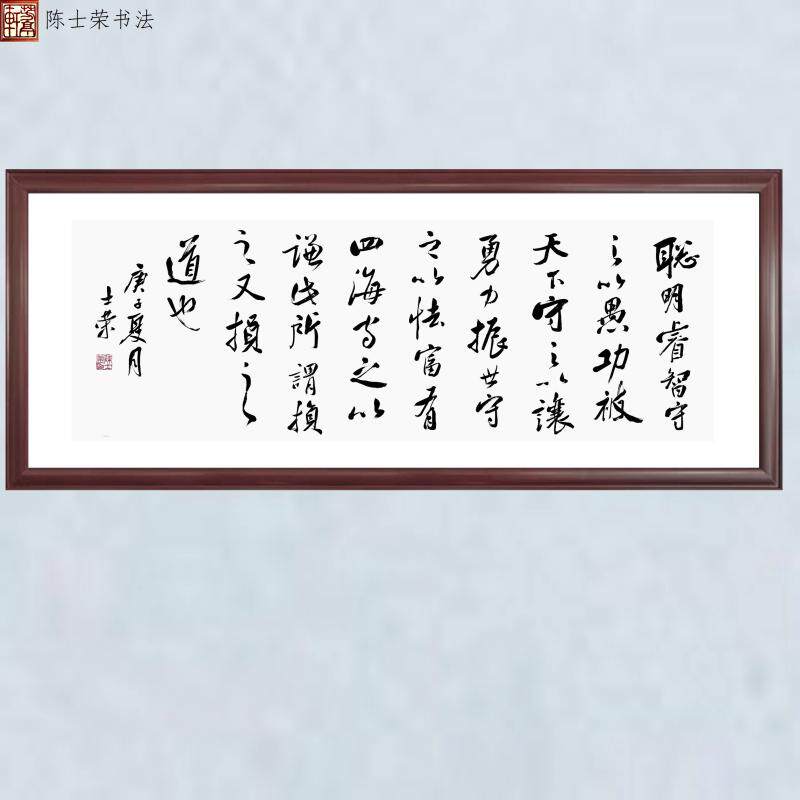 陈士荣书法
聪明睿智守
之以愚功被
天下守之以讓
勇力振世守
之以怯富有
四海守之以
謙此所謂損
之又損之
道也
庚子夏月
士荣